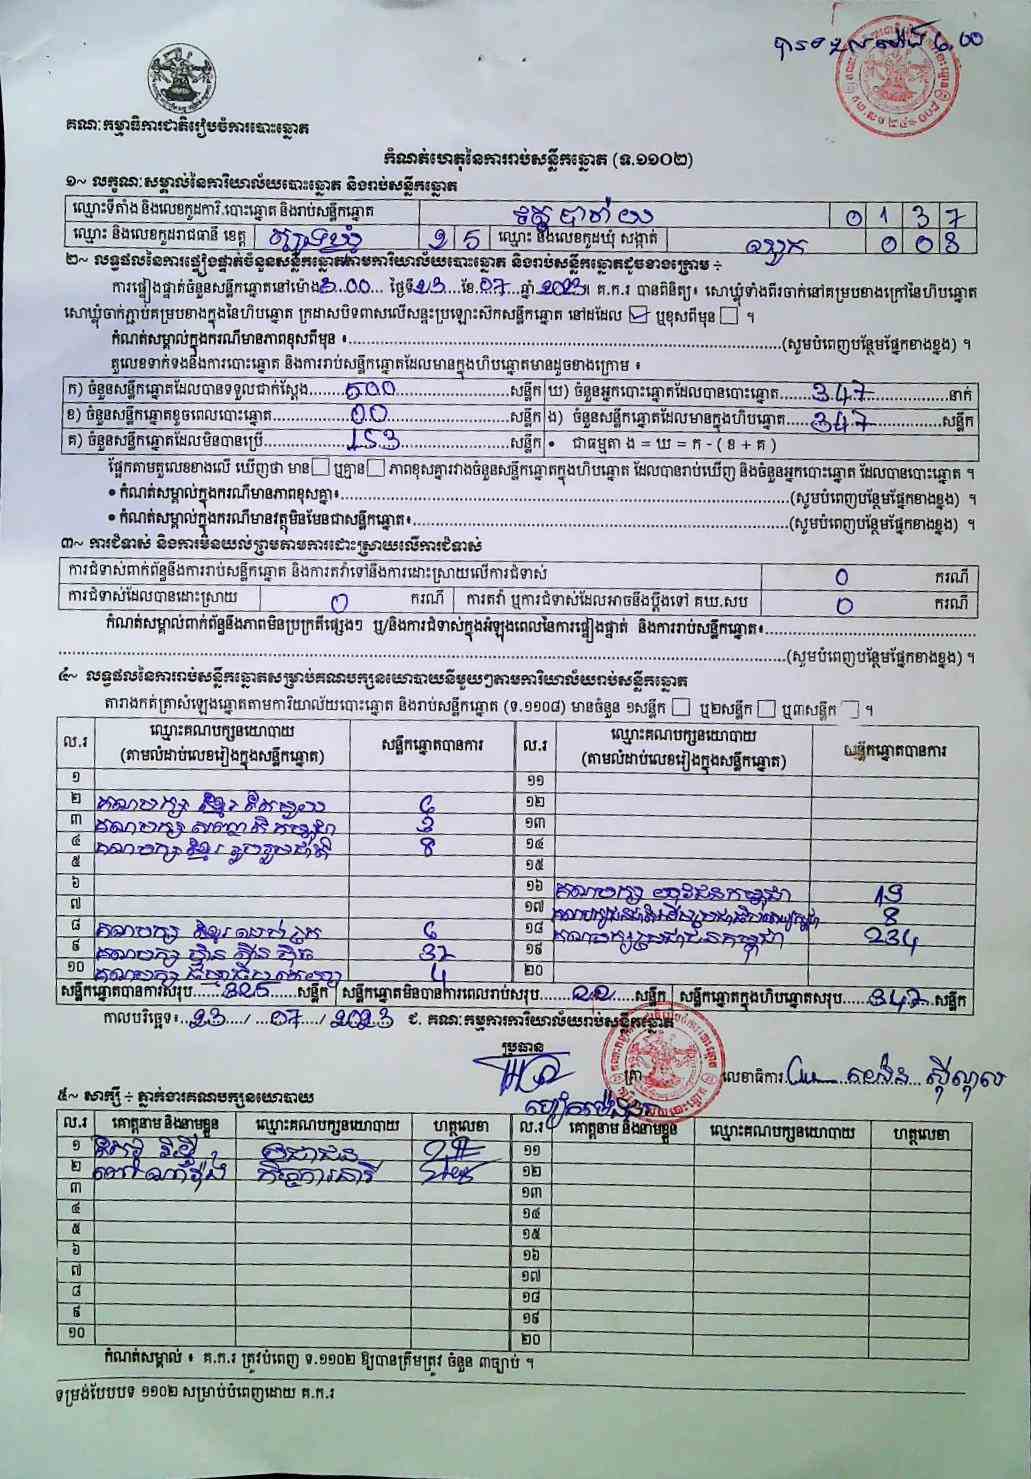 គណៈកម្មាធិការជាតិរៀបចំការបោះឆ្នោត
កំណត់ហេតុនៃការរាប់សន្លឹកឆ្នោត (ទ.១១០២)
១~ លក្ខណៈសម្គាល់នៃការិយាល័យបោះឆ្នោត និងរាប់សន្លឹកឆ្នោត
ឈ្មោះទីតាំង និងលេខកូដការិ.បោះឆ្នោត និងរាប់សន្លឹកឆ្នោត 0 1 3 7
ឈ្មោះ និងលេខកូដរាជធានី ខេត្ត ត្បូងឃ្មុំ 2 5 ឈ្មោះ និងលេខកូដឃុំ សង្កាត់ 0 0 8
២~ លទ្ធផលនៃការផ្ទៀងផ្ទាត់ចំនួនសន្លឹកឆ្នោតតាមការិយាល័យបោះឆ្នោត និងរាប់សន្លឹកឆ្នោតដូចខាងក្រោម ÷
ការផ្ទៀងផ្ទាត់ចំនួនសន្លឹកឆ្នោតនៅម៉ោង 3.00 ថ្ងៃទី 23 ខែ 07 ឆ្នាំ 2023 គ.ក.រ បានពិនិត្យ៖ សោឃ្លុំទាំងពីរចាក់នៅគម្របខាងក្រៅនៃហិបឆ្នោត
សោឃ្លុំចាក់ភ្ជាប់គម្របខាងក្នុងនៃហិបឆ្នោត ក្រដាសបិទពាសលើសន្ទះប្រឡោះសិកសន្លឹកឆ្នោត នៅដដែល ☑ ឬខុសពីមុន ☐ ។
កំណត់សម្គាល់ក្នុងករណីមានភាពខុសពីមុន ៖ (សូមបំពេញបន្ថែមផ្នែកខាងខ្នង) ។
តួលេខទាក់ទងនឹងការបោះឆ្នោត និងការរាប់សន្លឹកឆ្នោតដែលមានក្នុងហិបឆ្នោតមានដូចខាងក្រោម ៖
ក) ចំនួនសន្លឹកឆ្នោតដែលបានទទួលជាក់ស្តែង 500 សន្លឹក ឃ) ចំនួនអ្នកបោះឆ្នោតដែលបានបោះឆ្នោត 347 នាក់
ខ) ចំនួនសន្លឹកឆ្នោតខូចពេលបោះឆ្នោត 00 សន្លឹក ង) ចំនួនសន្លឹកឆ្នោតដែលមានក្នុងហិបឆ្នោត 347 សន្លឹក
គ) ចំនួនសន្លឹកឆ្នោតដែលមិនបានប្រើ 153 សន្លឹក • ជាធម្មតា ង = ឃ = ក - ( ខ + គ )
ផ្អែកតាមតួលេខខាងលើ ឃើញថា មាន ☐ ឬគ្មាន ☐ ភាពខុសគ្នារវាងចំនួនសន្លឹកឆ្នោតក្នុងហិបឆ្នោត ដែលបានរាប់ឃើញ និងចំនួនអ្នកបោះឆ្នោត ដែលបានបោះឆ្នោត ។
• កំណត់សម្គាល់ក្នុងករណីមានភាពខុសគ្នា៖ (សូមបំពេញបន្ថែមផ្នែកខាងខ្នង) ។
• កំណត់សម្គាល់ក្នុងករណីមានវត្ថុមិនមែនជាសន្លឹកឆ្នោត៖ (សូមបំពេញបន្ថែមផ្នែកខាងខ្នង) ។
៣~ ការជំទាស់ និងការមិនយល់ព្រមតាមការដោះស្រាយលើការជំទាស់
ការជំទាស់ពាក់ព័ន្ធនឹងការរាប់សន្លឹកឆ្នោត និងការតវ៉ាទៅនឹងការដោះស្រាយលើការជំទាស់ 0 ករណី
ការជំទាស់ដែលបានដោះស្រាយ 0 ករណី ការតវ៉ា ឬការជំទាស់ដែលអាចនឹងប្តឹងទៅ គឃ.សប 0 ករណី
កំណត់សម្គាល់ពាក់ព័ន្ធនឹងភាពមិនប្រក្រតីផ្សេងៗ ឬ/និងការជំទាស់ក្នុងអំឡុងពេលនៃការផ្ទៀងផ្ទាត់ និងការរាប់សន្លឹកឆ្នោត៖
(សូមបំពេញបន្ថែមផ្នែកខាងខ្នង) ។
៤~ លទ្ធផលនៃការរាប់សន្លឹកឆ្នោតសម្រាប់គណបក្សនយោបាយនីមួយៗតាមការិយាល័យរាប់សន្លឹកឆ្នោត
តារាងកត់ត្រាសំឡេងឆ្នោតតាមការិយាល័យបោះឆ្នោត និងរាប់សន្លឹកឆ្នោត (ទ.១១០៨) មានចំនួន ១សន្លឹក ☐ ឬ២សន្លឹក ☐ ឬ៣សន្លឹក ☐ ។
ល.រ ឈ្មោះគណបក្សនយោបាយ (តាមលំដាប់លេខរៀងក្នុងសន្លឹកឆ្នោត) សន្លឹកឆ្នោតបានការ ល.រ ឈ្មោះគណបក្សនយោបាយ (តាមលំដាប់លេខរៀងក្នុងសន្លឹកឆ្នោត) សន្លឹកឆ្នោតបានការ
១ ១១
២ គណបក្ស ខ្មែរ តែមួយ ១២
៣ ១៣
៤ គណបក្ស ខ្មែរ រួបរួមជាតិ 8 ១៤
៥ ១៥
៦ ១៦ គណបក្ស យុវជនកម្ពុជា 19
៧ ១៧ 8
៨ ១៨ គណបក្សប្រជាជនកម្ពុជា 234
៩ គណបក្ស ហ៊្វុនស៊ិនប៉ិច 37 ១៩
១០ គណបក្ស ធម្មាធិបតេយ្យ 4 ២០
សន្លឹកឆ្នោតបានការសរុប 325 សន្លឹក សន្លឹកឆ្នោតមិនបានការពេលរាប់សរុប 22 សន្លឹក សន្លឹកឆ្នោតក្នុងហិបឆ្នោតសរុប 347 សន្លឹក
កាលបរិច្ឆេទ៖ 23 / 07 / 2023 ជ. គណៈកម្មការការិយាល័យរាប់សន្លឹកឆ្នោត
ប្រធាន
ត្រា លេខាធិការ
៥~ សាក្សី ÷ ភ្នាក់ងារគណបក្សនយោបាយ
ល.រ គោត្តនាម និងនាមខ្លួន ឈ្មោះគណបក្សនយោបាយ ហត្ថលេខា ល.រ គោត្តនាម និងនាមខ្លួន ឈ្មោះគណបក្សនយោបាយ ហត្ថលេខា
១ ប្រជាជន ១១
២ ១២
៣ ១៣
៤ ១៤
៥ ១៥
៦ ១៦
៧ ១៧
៨ ១៨
៩ ១៩
១០ ២០
កំណត់សម្គាល់ ៖ គ.ក.រ ត្រូវបំពេញ ទ.១១០២ ឱ្យបានត្រឹមត្រូវ ចំនួន ៣ច្បាប់ ។
ទម្រង់បែបបទ ១១០២ សម្រាប់បំពេញដោយ គ.ក.រ